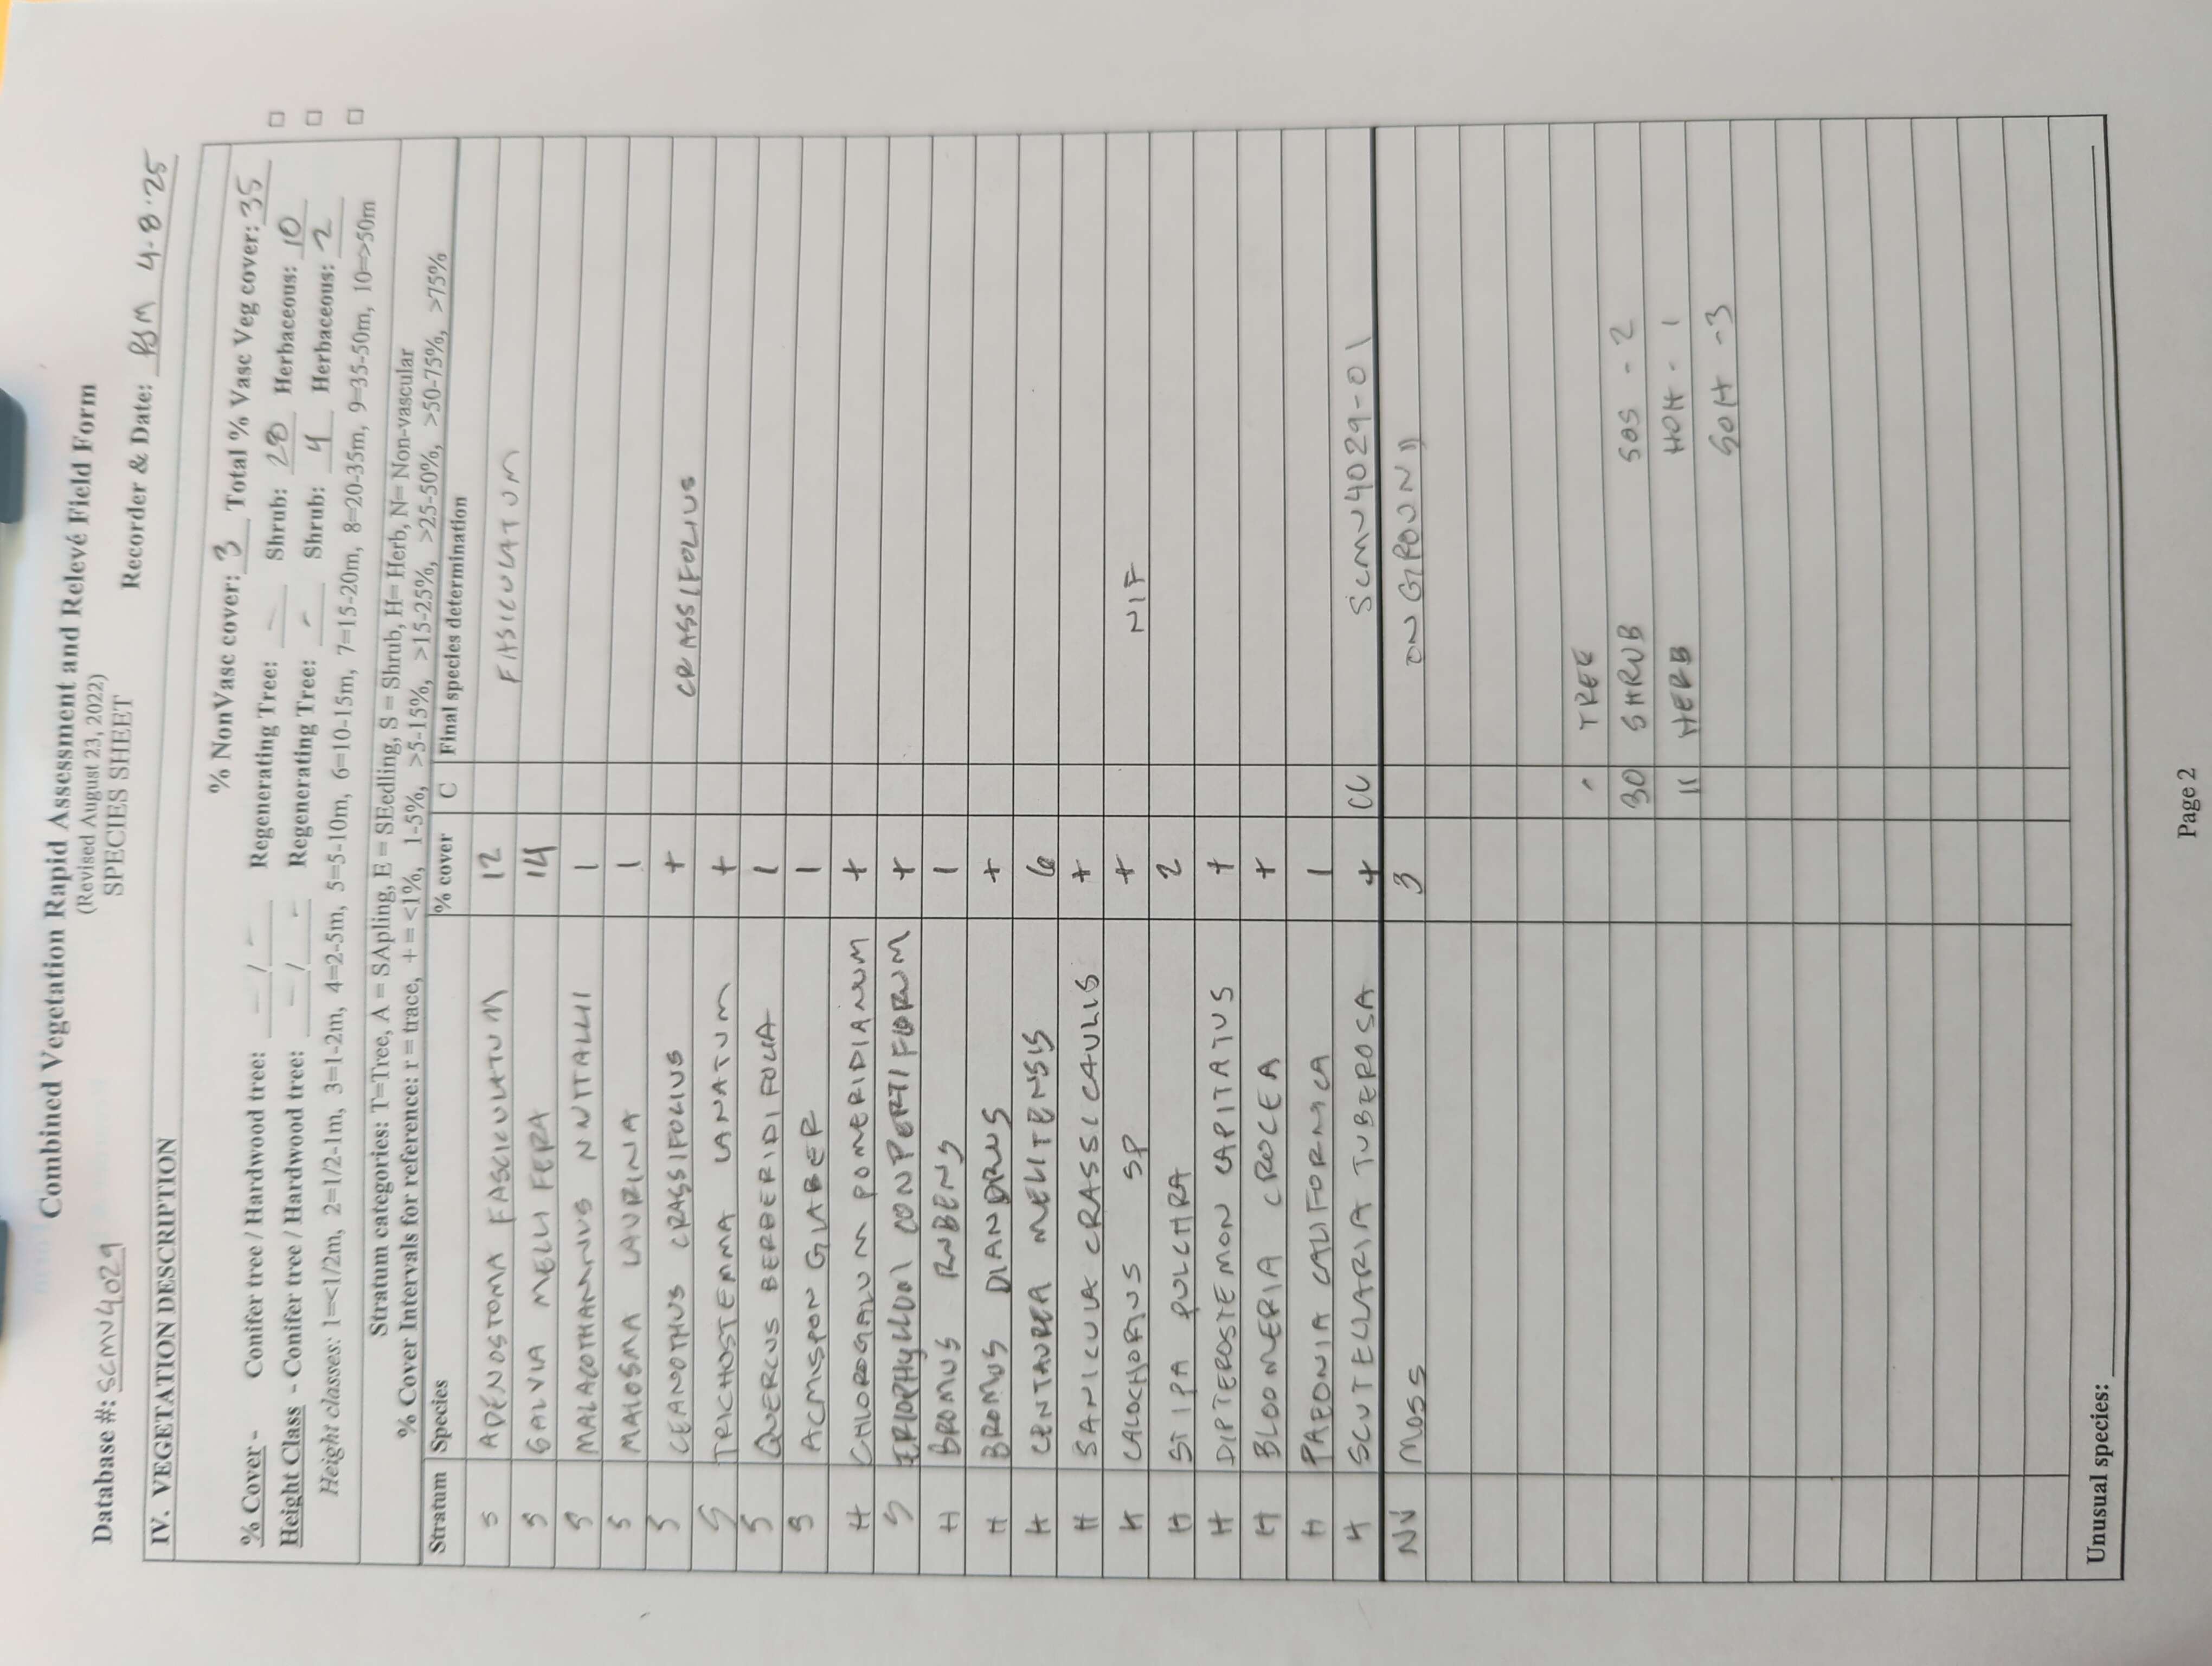 Combined Vegetation Rapid Assessment and Relevé Field Form
(Revised August 23, 2022)
SPECIES SHEET
Database #: SCMV4029 Recorder & Date: PSM 4-8-25
IV. VEGETATION DESCRIPTION
% NonVasc cover: 3 Total % Vasc Veg cover: 35
% Cover - Conifer tree / Hardwood tree: - / - Regenerating Tree: - Shrub: 28 Herbaceous: 10 □
Height Class - Conifer tree / Hardwood tree: - / - Regenerating Tree: - Shrub: 4 Herbaceous: 2 □
Height classes: 1=<1/2m, 2=1/2-1m, 3=1-2m, 4=2-5m, 5=5-10m, 6=10-15m, 7=15-20m, 8=20-35m, 9=35-50m, 10=>50m □
Stratum categories: T=Tree, A = SApling, E = SEedling, S = Shrub, H= Herb, N= Non-vascular
% Cover Intervals for reference: r = trace, + = <1%, 1-5%, >5-15%, >15-25%, >25-50%, >50-75%, >75%
Stratum Species % cover C Final species determination
S ADENOSTOMA FASCICULATUM 12 FASICULATUM
S SALVIA MELLIFERA 14
S MALACOTHAMNUS NUTTALLII 1
S MALOSMA LAURINA 1
S CEANOTHUS CRASSIFOLIUS + CRASSIFOLIUS
S TRICHOSTEMMA LANATUM +
S QUERCUS BERBERIDIFOLIA 1
S ACMISPON GLABER 1
H CHLOROGALUM POMERIDIANUM +
S ERIOPHYLLUM CONFERTIFLORUM +
H BROMUS RUBENS 1
H BROMUS DIANDRUS +
H CENTAUREA MELITENSIS 6
H SANICULA CRASSICAULIS +
H CALOCHORTUS SP + NIF
H STIPA PULCHRA 2
H DIPTEROSTEMON CAPITATUS +
H BLOOMERIA CROCEA +
H PAEONIA CALIFORNICA 1
H SCUTELLARIA TUBEROSA + CC SCMV4029-01
NV MOSS 3 ON GROUND
- TREE
30 SHRUB SOS - 2
11 HERB HOH - 1
SOH - 3
Unusual species:
Page 2